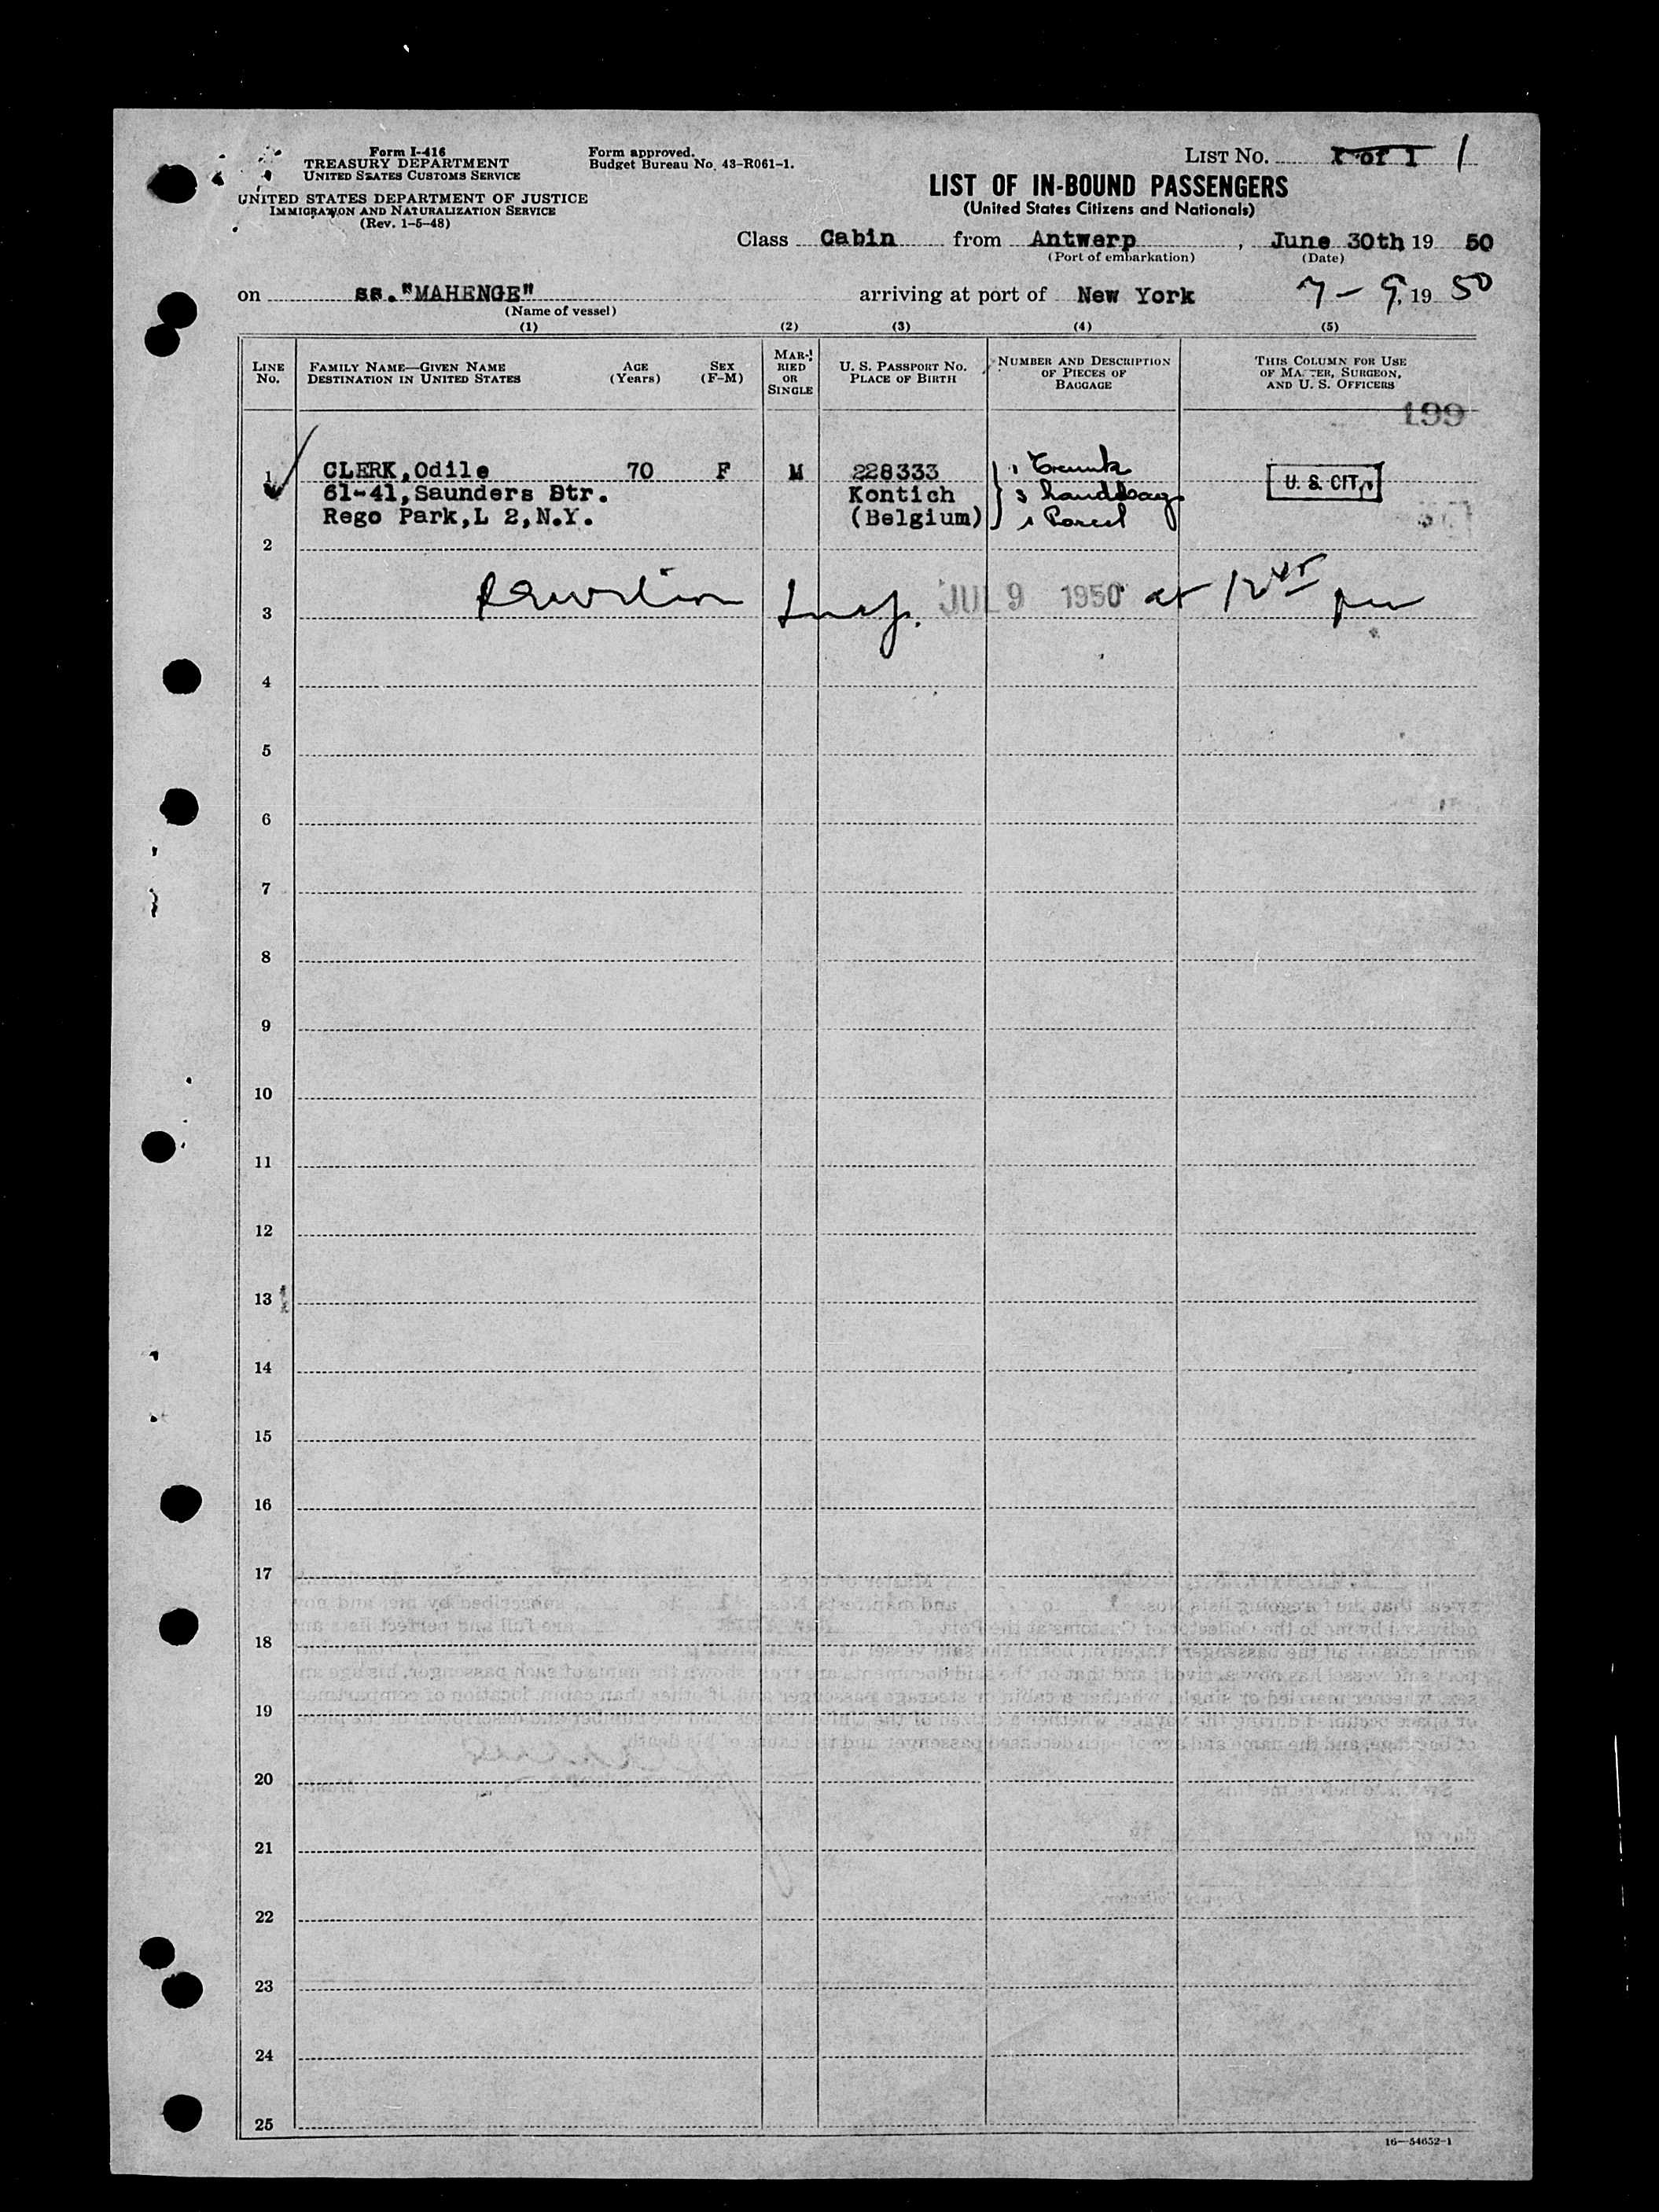 Form I-416
TREASURY DEPARTMENT
UNITED STATES CUSTOMS SERVICE
UNITED STATES DEPARTMENT OF JUSTICE
IMMIGRATION AND NATURALIZATION SERVICE
(Rev. 1-5-48)
Form approved.
Budget Bureau No. 43-R061-1.
LIST NO. 1 of 1 1
LIST OF IN-BOUND PASSENGERS
(United States Citizens and Nationals)
Class Cabin from Antwerp, June 30th 19 50
(Port of embarkation) (Date)
on ss."MAHENGE" arriving at port of New York 7-9, 19 50
(Name of vessel)
(1) (2) (3) (4) (5)
LINE No. FAMILY NAME—GIVEN NAME DESTINATION IN UNITED STATES AGE (Years) SEX (F-M) MARRIED OR SINGLE U. S. PASSPORT NO. PLACE OF BIRTH NUMBER AND DESCRIPTION OF PIECES OF BAGGAGE THIS COLUMN FOR USE OF MASTER, SURGEON, AND U. S. OFFICERS
199
1 CLERK,Odile 70 F M 228333 1 Trunk U. S. CIT.
61-41,Saunders Str. Kontich 3 handbags
Rego Park,L 2,N.Y. (Belgium) 1 Parcel
2
3 Insp. JUL 9 1950 at 12 45 pm
4
5
6
7
8
9
10
11
12
13
14
15
16
17
18
19
20
21
22
23
24
25
16—54652-1